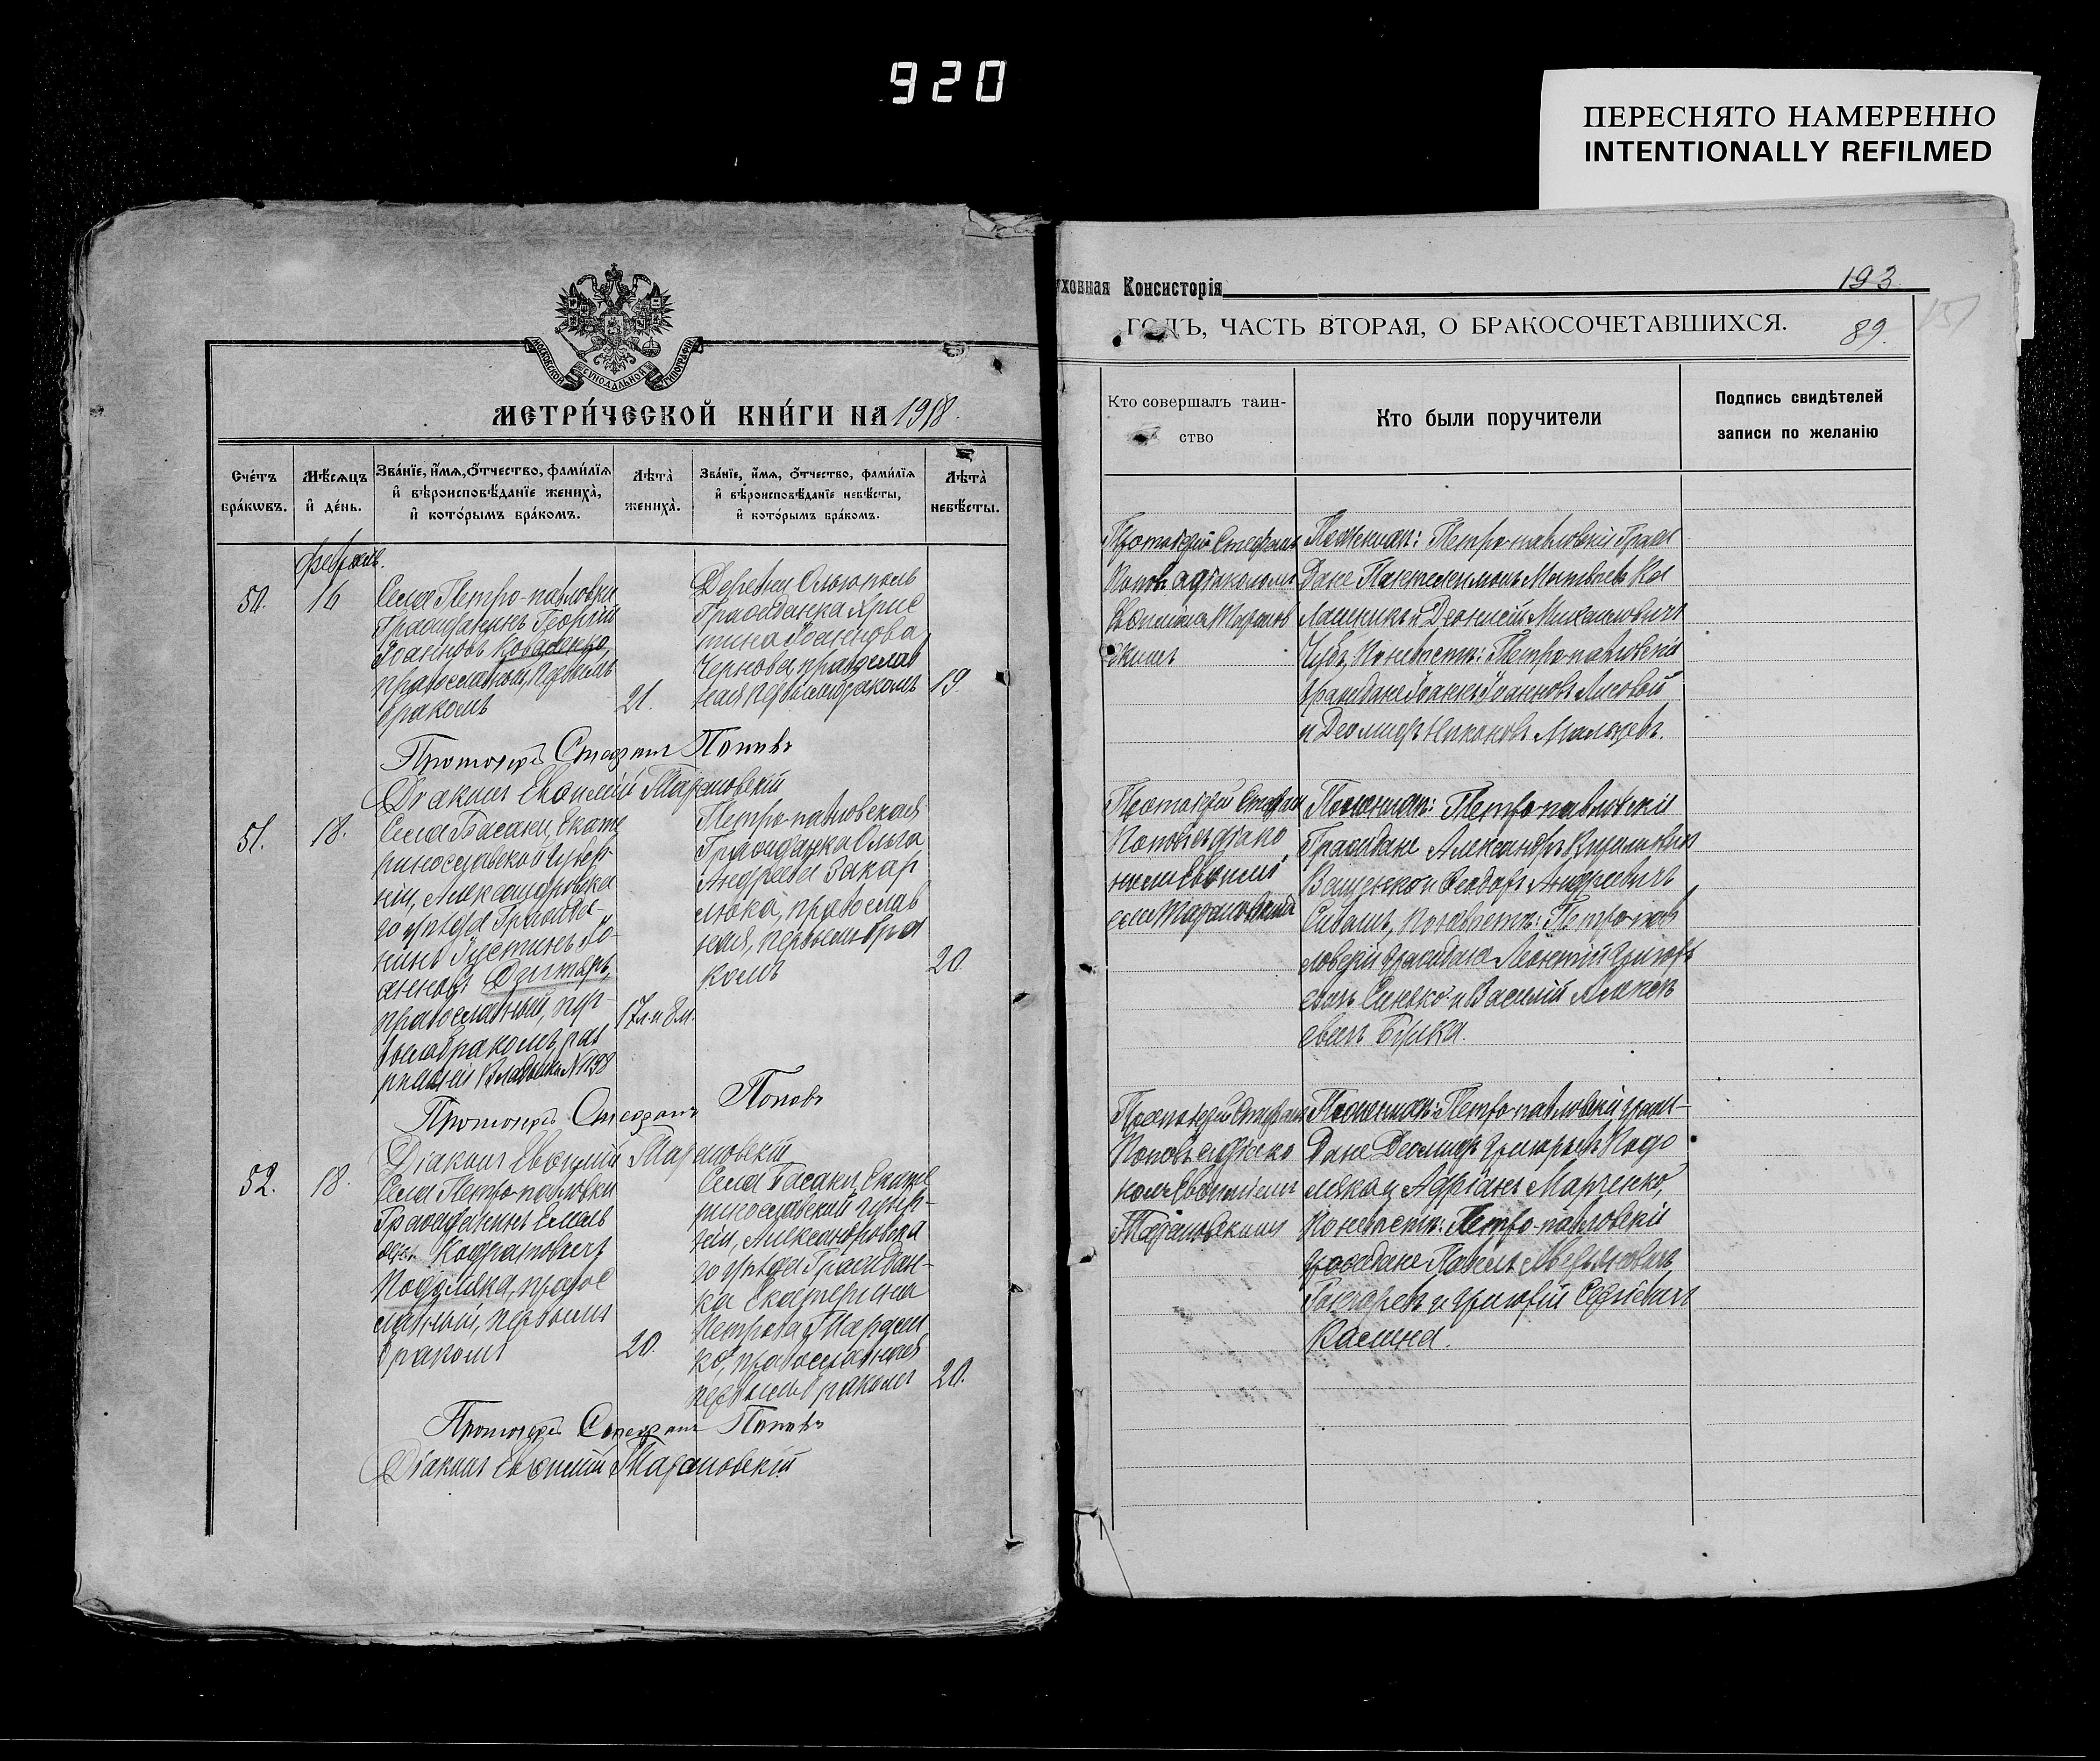 920
ПЕРЕСНЯТО НАМЕРЕННО
INTENTIONALLY REFILMED
МОСКОВСКОЙ СѴНОДАЛЬНОЙ ТИПОГРАФІИ
МЕТРИ́ЧЕСКОЙ КНИ́ГИ НА 1918.
Сче́тъ
бра́кѡвъ.
Мѣ́сяцъ
и҆ де́нь.
Зва́нїе, и҆́мѧ, ѻ҆́тчество, фами́лїѧ
и҆ вѣроисповѣ́данїе жениха̀,
и҆ кото́рымъ бра́комъ.
Лѣта̀
жениха̀.
Зва́нїе, и҆́мѧ, ѻ҆́тчество, фами́лїѧ
и҆ вѣроисповѣ́данїе невѣ́сты,
и҆ кото́рымъ бра́комъ.
Лѣта̀
невѣ́сты.
50.
16
Села Петро-павловки
Гражданинъ Георгій
Іоанновъ Коваленко,
православный, первымъ
бракомъ
21.
Деревни
Гражданка Хрис
тина Іоаннова
Чернова, православ
ная первымъ бракомъ
19.
Протоіерей Стефанъ Поповъ
Діаконъ Евѳимій Тарановскій
51.
18.
Села Басани, Екате
ринославской губер-
ніи, Александровска
го уѣзда Гражда-
нинъ Іустинъ Іо-
анновъ
православный, пер-
вымъ бракомъ, раз
17 л. и 8 м.
Петро-павловская
Гражданка Ольга
Андреева Захар
люка, православ
ная, первымъ бра
комъ
20
Протоіерей Стефанъ Поповъ
Діаконъ Евѳимій Тарановскій
52.
18.
Села Петро-павловки
Гражданинъ Емель
янъ Кодратовичъ
Подоляка, правос
лавный, первымъ
бракомъ
20
Села Басани, Екате
ринославской губер-
ніи, Александровска
го уѣзда Граждан-
ка Екатерина
Петрова
ко, православная
первымъ бракомъ
20.
Протоіерей Стефанъ Поповъ
Діаконъ Евѳимій Тарановскій
уховная Консисторія
193.
ГОДЪ, ЧАСТЬ ВТОРАЯ, О БРАКОСОЧЕТАВШИХСЯ.
89.
Кто совершалъ таин-
ство
Кто были поручители
Подпись свидѣтелей
записи по желанію
Протоіерей Стефанъ
Поповъ съ діакономъ
Евѳиміемъ Таранов
скимъ
По женихѣ: Петро-павловскіе Граж
дане Пантелеимонъ Матвѣевъ Ка
лашникъ и Леонтій Михаиловичъ
Чубъ, По невѣстѣ: Петро-павловскіе
граждане Іоаннъ Іоанновъ Лисовой
и Деомидъ Никоновъ Мальцевъ.
Протоіерей Стефанъ
Поповъ съ діако
номъ Евѳимі
емъ Тарановскимъ
По женихѣ: Петро-павловскіе
Граждане Александръ Кирилловичъ
Ващенко и Ѳеодоръ Андреевичъ
По невѣстѣ: Петро-пав
ловскіе граждане Леонтій Григорь
евичъ Синяко и Василій Алексѣ
евичъ
Протоіерей Стефанъ
Поповъ съ діако
номъ Евѳиміемъ
Тарановскимъ
По женихѣ: Петро-павловскіе граж-
дане Деомидъ Григорьевъ Подо
ляка и Адріанъ Марченко,
По невѣстѣ: Петро-павловскіе
граждане Павелъ Аверьяновичъ
Гонтаревъ и Григорій Сергѣевичъ
Калина.